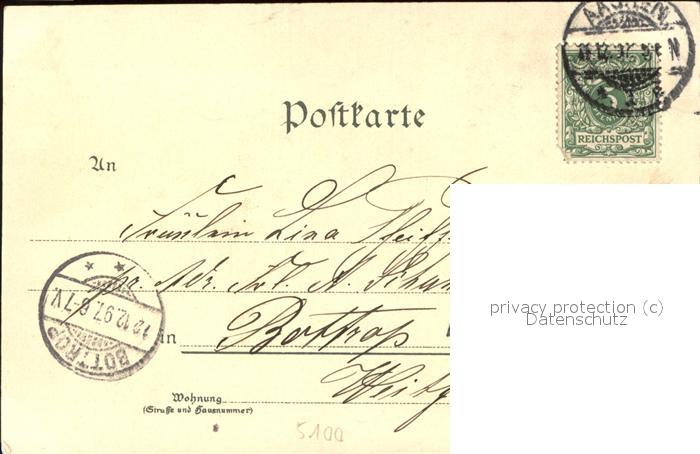 AACHEN
12.97
N
5
REICHSPOST
Postkarte
An
Fräulein Lina
pr. Adr. Frl. A.
in Bottrop
12.12.97. 6-7 V.
BOTTROP
Wohnung
(Straße und Hausnummer)
5100
privacy protection (c)
Datenschutz